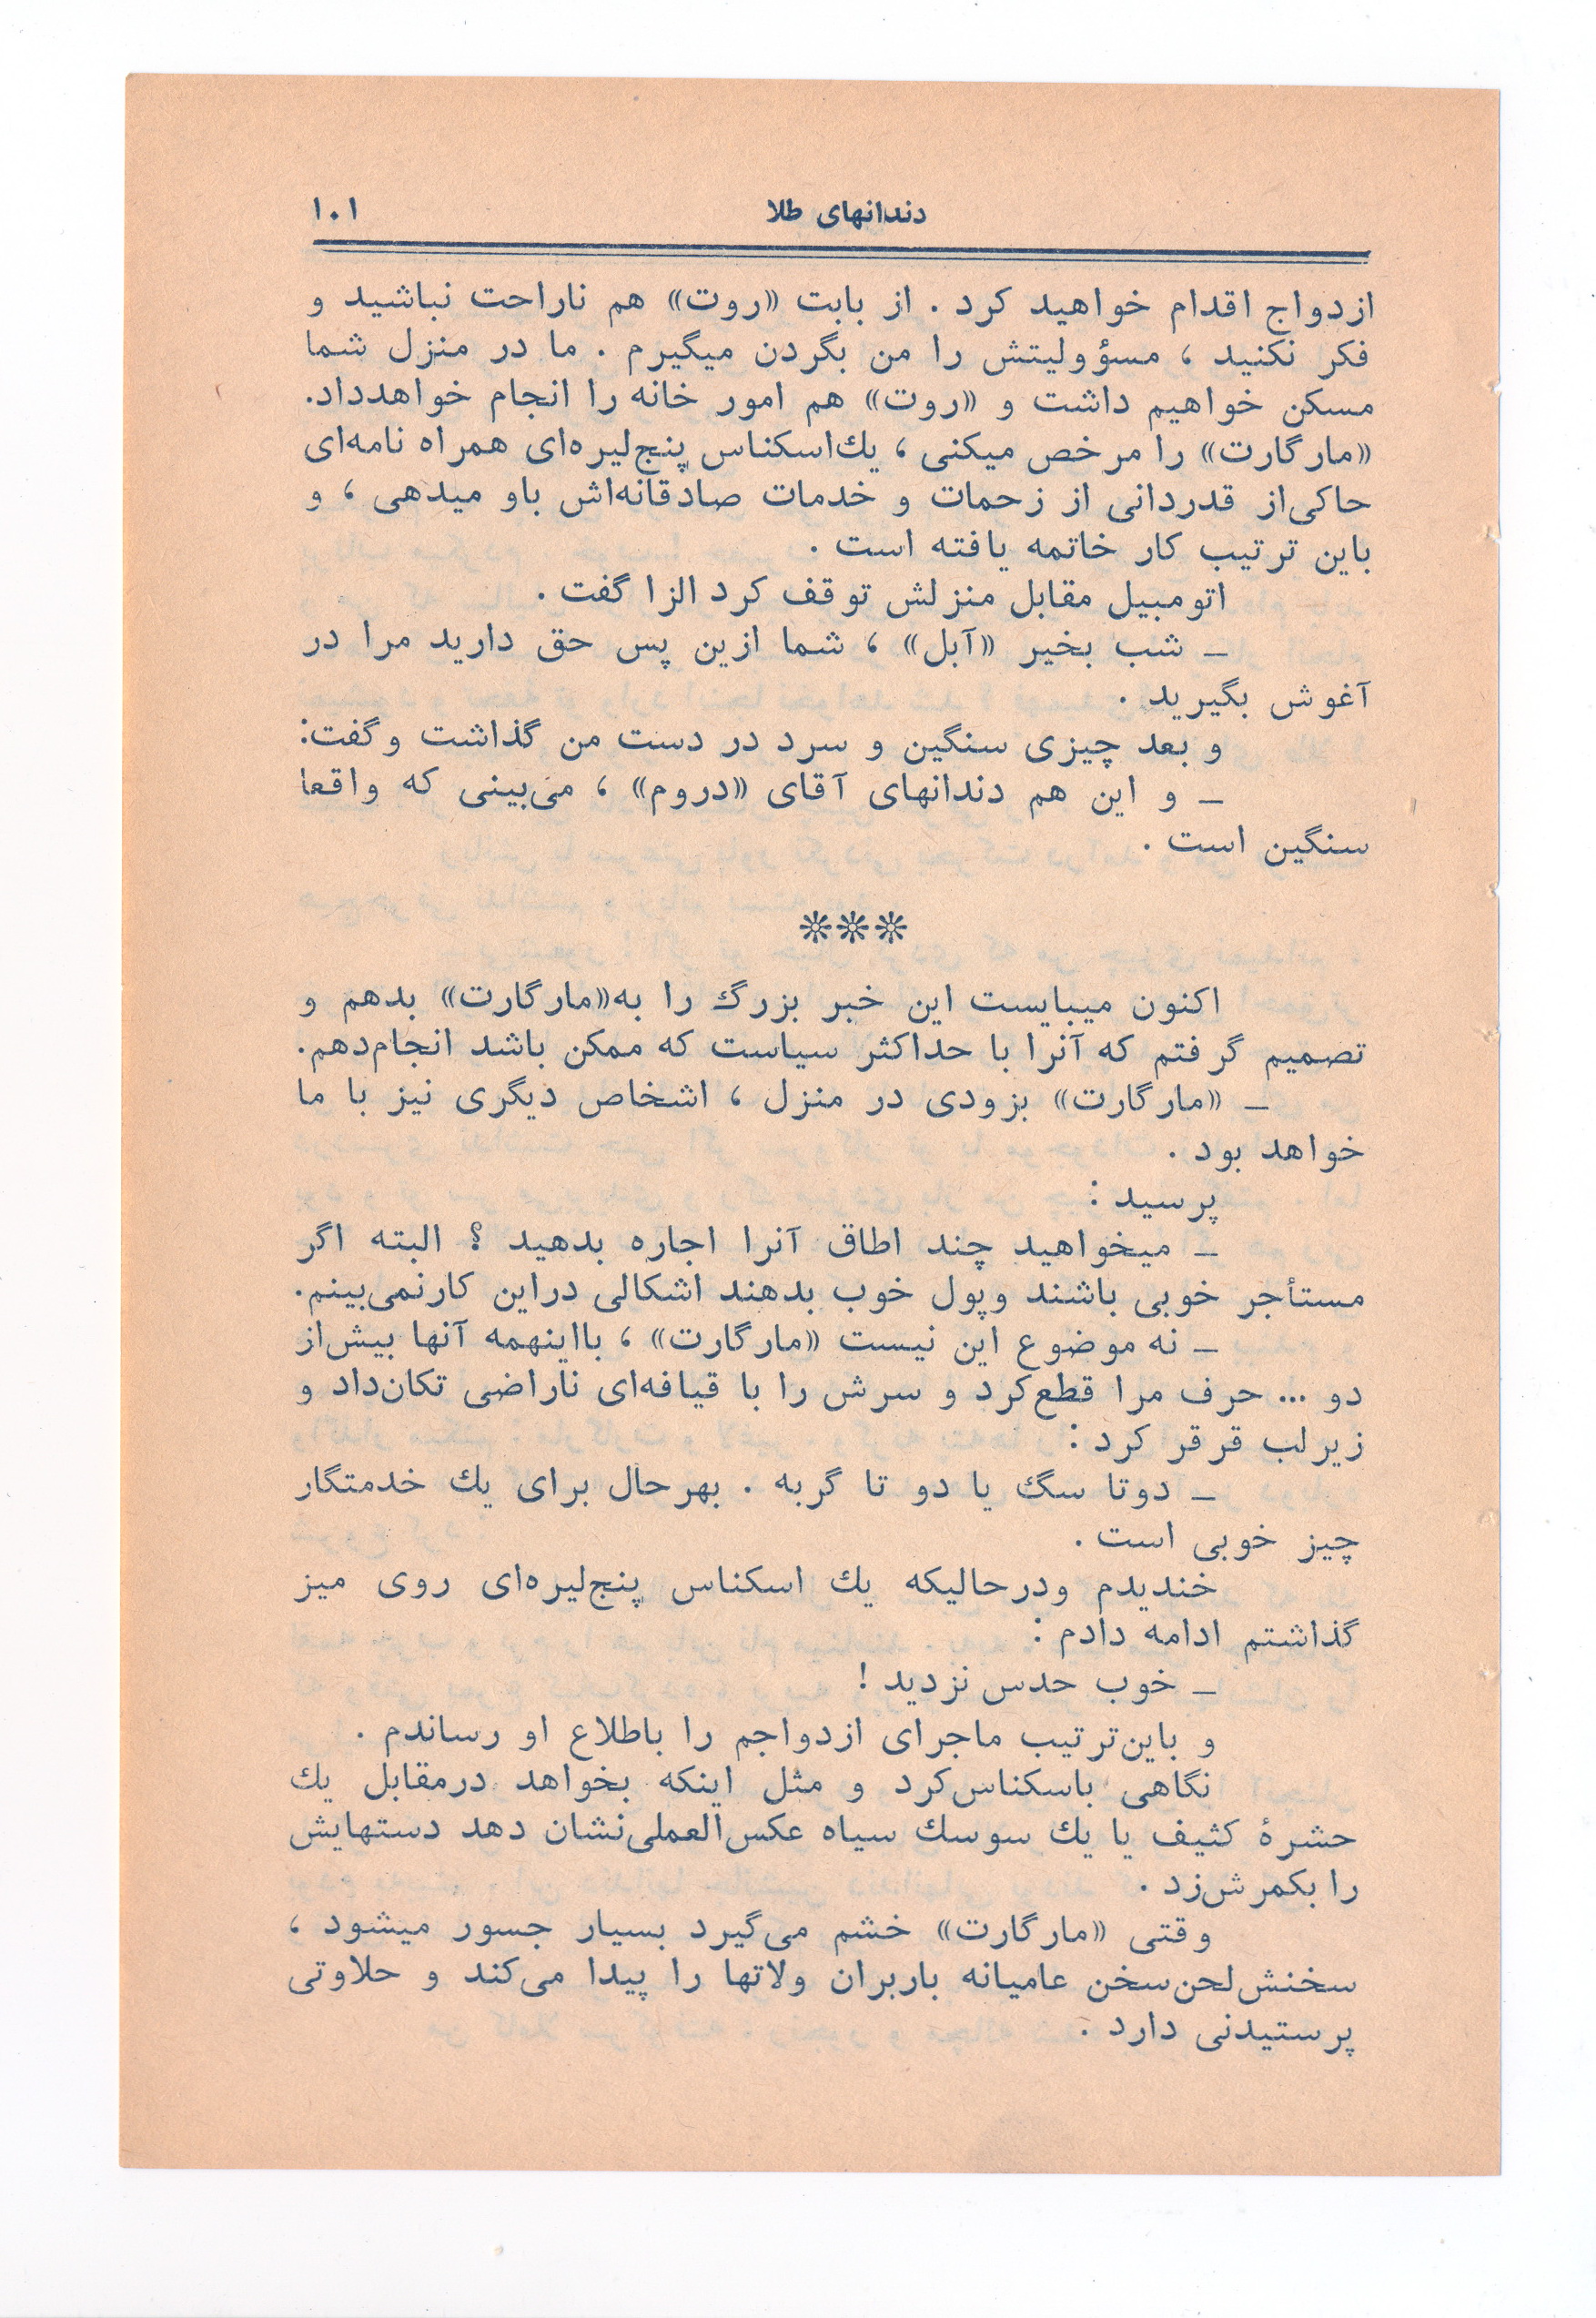 دندانهای طلا ۱۰۱
ازدواج اقدام خواهید کرد . از بابت «روت» هم ناراحت نباشید و
فکر نکنید ، مسؤولیتش را من بگردن میگیرم . ما در منزل شما
مسکن خواهیم داشت و «روت» هم امور خانه را انجام خواهدداد.
«مارگارت» را مرخص میکنی ، یك‌اسکناس پنج‌لیره‌ای همراه نامه‌ای
حاکی‌از قدردانی از زحمات و خدمات صادقانه‌اش باو میدهی ، و
باین ترتیب کار خاتمه یافته است .
اتومبیل مقابل منزلش توقف کرد الزا گفت .
ـ شب بخیر «آبل» ، شما ازین پس حق دارید مرا در
آغوش بگیرید .
و بعد چیزی سنگین و سرد در دست من گذاشت وگفت:
ـ و این هم دندانهای آقای «دروم» ، می‌بینی که واقعا
سنگین است .
***
اکنون میبایست این خبر بزرگ را به«مارگارت» بدهم و
تصمیم گرفتم که آنرا با حداکثر سیاست که ممکن باشد انجام‌دهم.
ـ «مارگارت» بزودی در منزل ، اشخاص دیگری نیز با ما
خواهد بود .
پرسید :
ـ میخواهید چند اطاق آنرا اجاره بدهید ؟ البته اگر
مستأجر خوبی باشند وپول خوب بدهند اشکالی دراین کارنمی‌بینم.
ـ نه موضوع این نیست «مارگارت» ، بااینهمه آنها بیش‌از
دو ... حرف مرا قطع‌کرد و سرش را با قیافه‌ای ناراضی تکان‌داد و
زیرلب قرقر کرد :
ـ دوتا سگ یا دو تا گربه . بهرحال برای یك خدمتگار
چیز خوبی است .
خندیدم ودرحالیکه یك اسکناس پنج‌لیره‌ای روی میز
گذاشتم ادامه دادم :
ـ خوب حدس نزدید !
و باین‌ترتیب ماجرای ازدواجم را باطلاع او رساندم .
نگاهی باسکناس‌کرد و مثل اینکه بخواهد درمقابل یك
حشرۀ کثیف یا یك سوسك سیاه عکس‌العملی‌نشان دهد دستهایش
را بکمرش‌زد .
وقتی «مارگارت» خشم می‌گیرد بسیار جسور میشود ،
سخنش‌لحن‌سخن عامیانه باربران ولاتها را پیدا می‌کند و حلاوتی
پرستیدنی دارد .